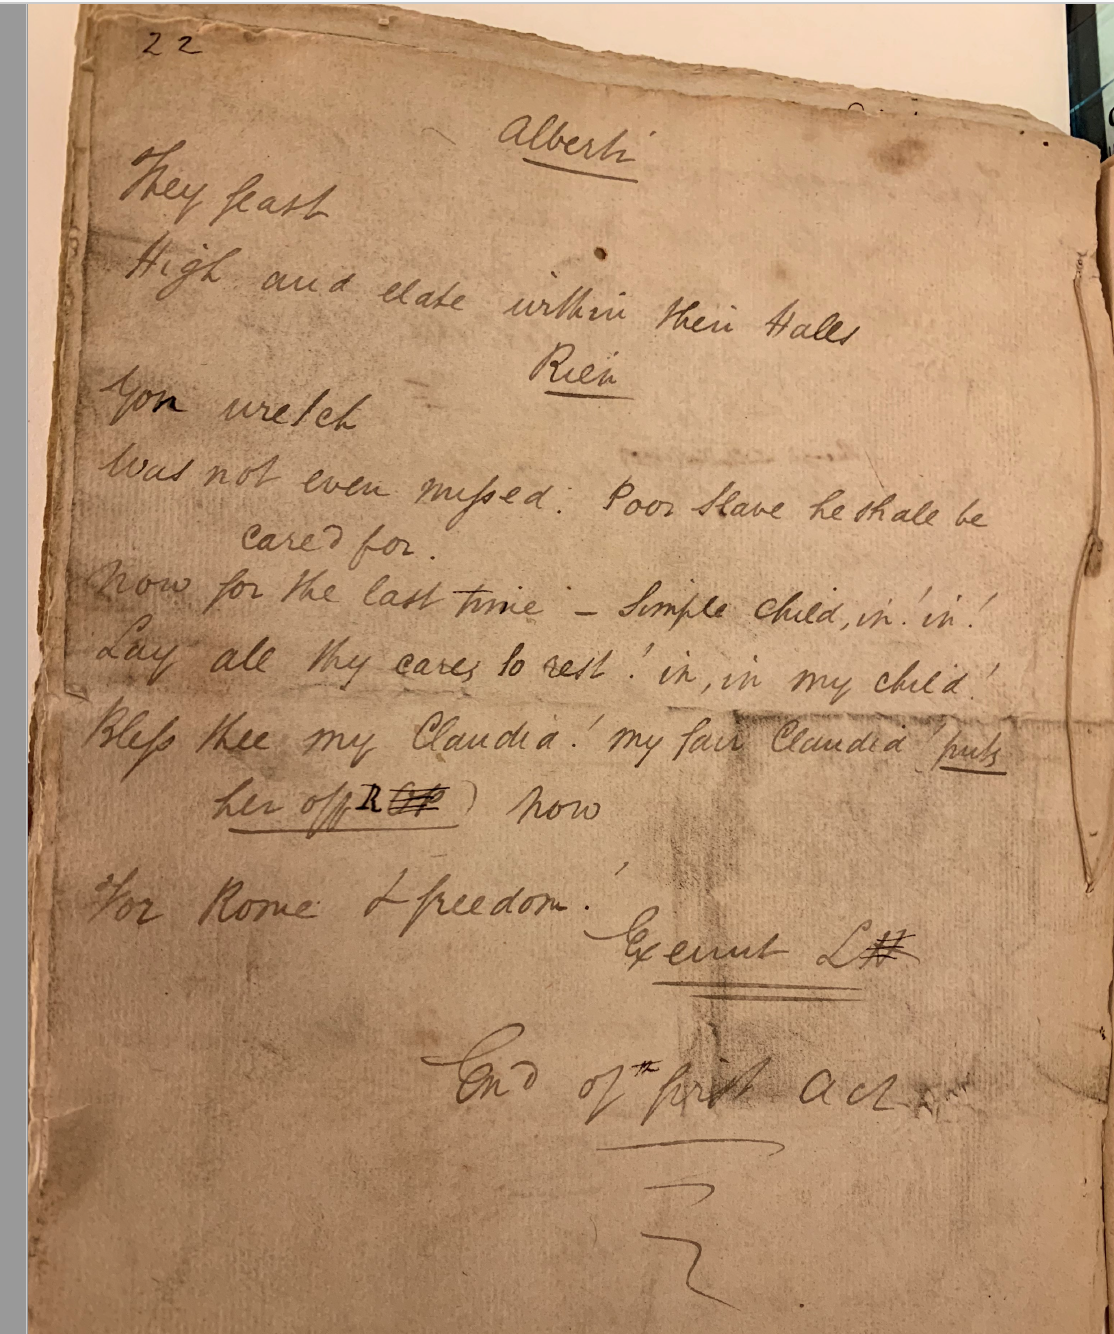 22
Alberti
They feast
High and elate within their Halls
Rien
Yon wretch
Was not even missed: Poor Slave he shall be
cared for.
Now for the last time – Simple Child, in! in!
Lay all thy cares to rest! in, in my child!
Bless thee my Claudia! my fair Claudia! puts
her off R) Now
For Rome & freedom!
Exeunt L
End of th first Act